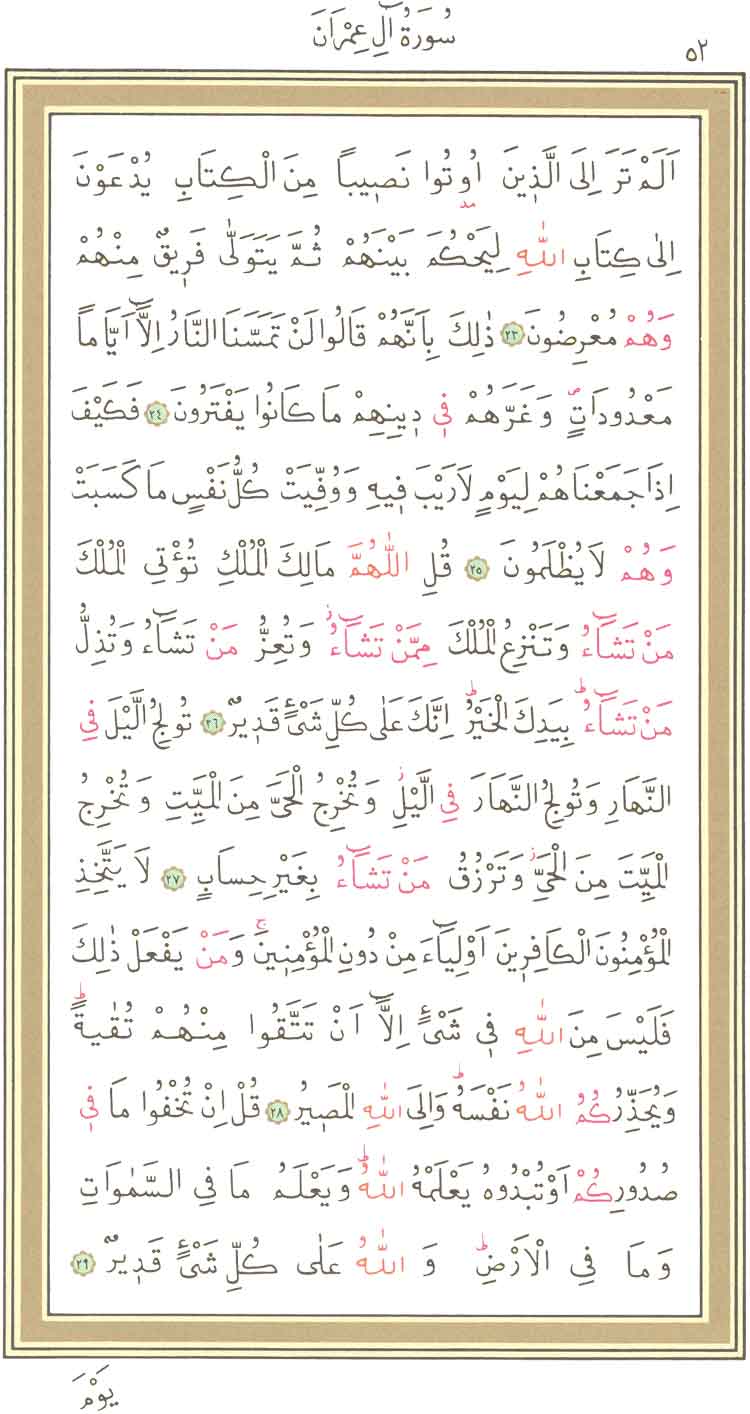 سُورَةُ اٰلِ عِمْرَانَ
٥٢
اَلَمْ تَرَ اِلَى الَّذٖينَ اُو۫تُوا نَصٖيباً مِنَ الْكِتَابِ يُدْعَوْنَ
اِلٰى كِتَابِ اللّٰهِ لِيَحْكُمَ بَيْنَهُمْ ثُمَّ يَتَوَلّٰى فَرٖيقٌ مِنْهُمْ
وَهُمْ مُعْرِضُونَ ٢٣ ذٰلِكَ بِاَنَّهُمْ قَالُوا لَنْ تَمَسَّنَا النَّارُ اِلَّٓا اَيَّاماً
مَعْدُودَاتٍۖ وَغَرَّهُمْ فٖي دٖينِهِمْ مَا كَانُوا يَفْتَرُونَ ٢٤ فَكَيْفَ
اِذَا جَمَعْنَاهُمْ لِيَوْمٍ لَا رَيْبَ فٖيهِ وَوُفِّيَتْ كُلُّ نَفْسٍ مَا كَسَبَتْ
وَهُمْ لَا يُظْلَمُونَ ٢٥ قُلِ اللّٰهُمَّ مَالِكَ الْمُلْكِ تُؤْتِي الْمُلْكَ
مَنْ تَشَٓاءُ وَتَنْزِعُ الْمُلْكَ مِمَّنْ تَشَٓاءُؗ وَتُعِزُّ مَنْ تَشَٓاءُ وَتُذِلُّ
مَنْ تَشَٓاءُؕ بِيَدِكَ الْخَيْرُؕ اِنَّكَ عَلٰى كُلِّ شَيْءٍ قَدٖيرٌ ٢٦ تُولِجُ الَّيْلَ فِي
النَّهَارِ وَتُولِجُ النَّهَارَ فِي الَّيْلِؗ وَتُخْرِجُ الْحَيَّ مِنَ الْمَيِّتِ وَتُخْرِجُ
الْمَيِّتَ مِنَ الْحَيِّؗ وَتَرْزُقُ مَنْ تَشَٓاءُ بِغَيْرِ حِسَابٍ ٢٧ لَا يَتَّخِذِ
الْمُؤْمِنُونَ الْكَافِرٖينَ اَوْلِيَٓاءَ مِنْ دُونِ الْمُؤْمِنٖينَۚ وَمَنْ يَفْعَلْ ذٰلِكَ
فَلَيْسَ مِنَ اللّٰهِ فٖي شَيْءٍ اِلَّٓا اَنْ تَتَّقُوا مِنْهُمْ تُقٰيةًؕ
وَيُحَذِّرُكُمُ اللّٰهُ نَفْسَهُؕ وَاِلَى اللّٰهِ الْمَصٖيرُ ٢٨ قُلْ اِنْ تُخْفُوا مَا فٖي
صُدُورِكُمْ اَوْ تُبْدُوهُ يَعْلَمْهُ اللّٰهُؕ وَيَعْلَمُ مَا فِي السَّمٰوَاتِ
وَمَا فِي الْاَرْضِؕ وَاللّٰهُ عَلٰى كُلِّ شَيْءٍ قَدٖيرٌ ٢٩
يَوْمَ